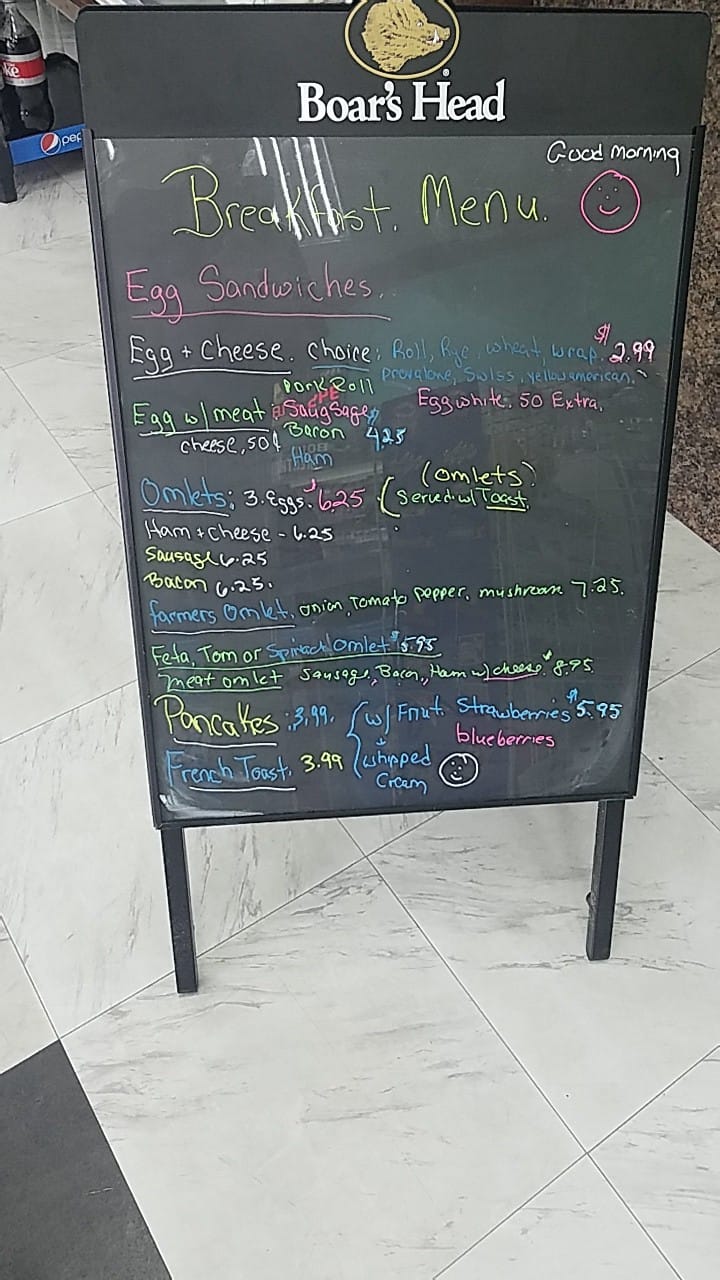 Boar's Head
Good morning
Breakfast. Menu.
Egg Sandwiches.
Egg + Cheese. Choice: Roll, Rye, wheat, wrap. $2.99
provalone, Swiss, yellow american.
Pork Roll
Egg w/ meat Sausage Egg white .50 Extra.
cheese, 50¢ Bacon 4.25
Ham
(omlets)
Omlets: 3. Eggs. $6.25 Served w/ Toast
Ham + cheese - 6.25
Sausage 6.25
Bacon 6.25.
farmers Omlet. onion, Tomato pepper, mushroom 7.25.
Feta, Tom or Spinach Omlet $5.95
meat omlet Sausage, Bacon, Ham w/ cheese $8.95
Pancakes: 3.99. w/ Fruit. Strawberries $5.95
blueberries
French Toast. 3.99 whipped
Cream
ke
pep